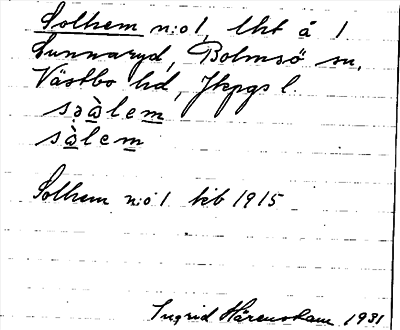 Solhem n:o 1, lht å 1
Sunnaryd, Bolmsö sn,
Västbo hd, Jkpgs l.
səàlem
sàlem
Solhem n:o 1 hib 1915
Ingrid Härenstam 1931